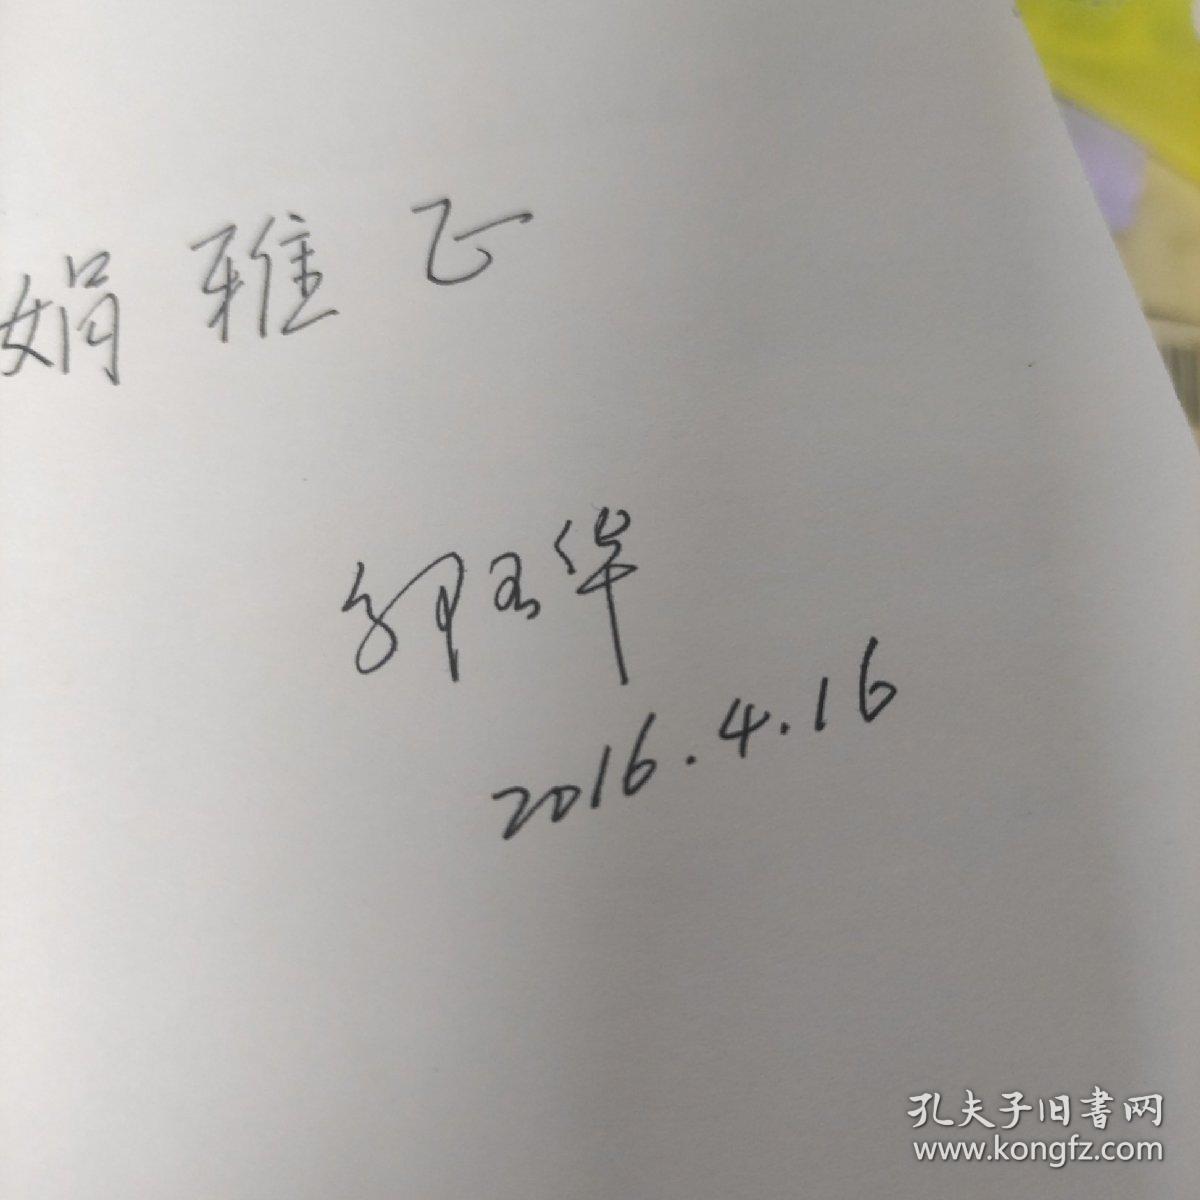 娟雅正
玉华
2016.4.16
孔夫子旧书网
www.kongfz.com